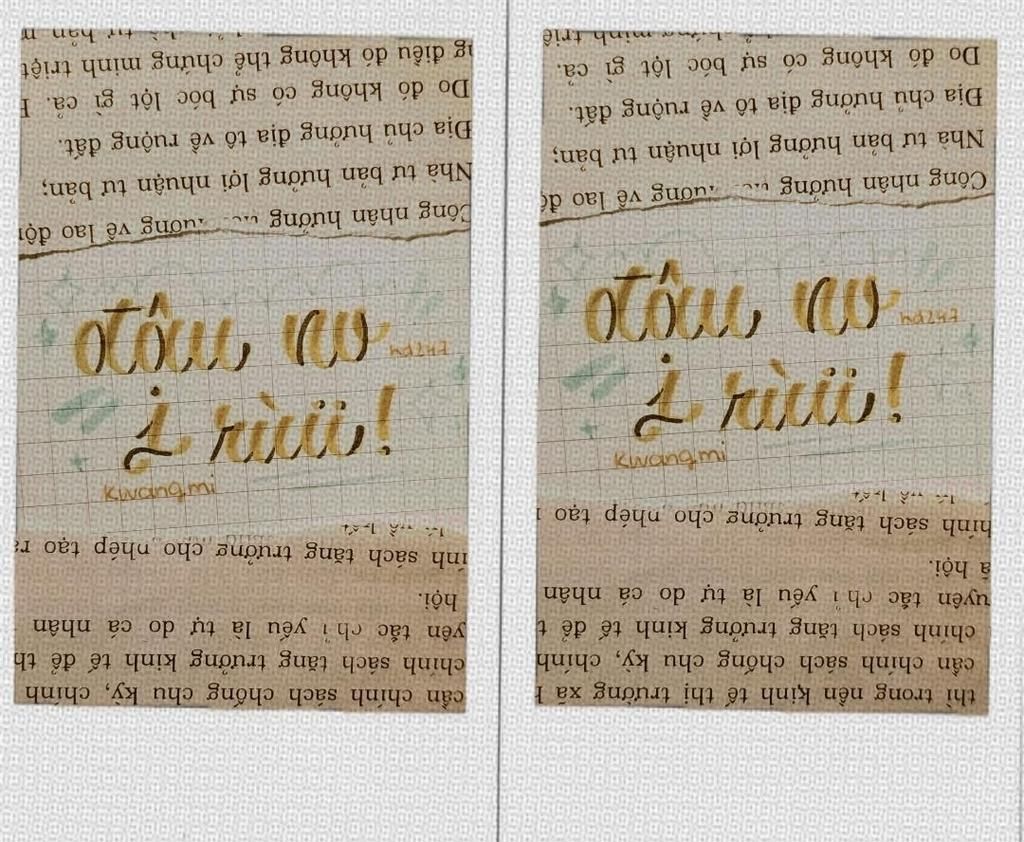 Công nhân hưởng lương về lao độn
Nhà tư bản hưởng lợi nhuận tư bản;
Địa chủ hưởng địa tô về ruộng đất.
Do đó không có sự bóc lột gì cả.
điều đó không thể chứng minh triệt
hd247
rùiii!
kwang.mi
cần chính sách chống chu kỳ, chính
chính sách tăng trưởng kinh tế để th
yên tắc chủ yếu là tự do cá nhân
hội.
ính sách tăng trưởng cho phép tạo ra
Công nhân hưởng lương về lao độ
Nhà tư bản hưởng lợi nhuận tư bản;
Địa chủ hưởng địa tô về ruộng đất.
Do đó không có sự bóc lột gì cả.
chứng minh triệ
hd247
rùiii!
kwang.mi
thì trong nền kinh tế thị trường xã h
cần chính sách chống chu kỳ, chính
chính sách tăng trưởng kinh tế để t
uyên tắc chủ yếu là tự do cá nhân
ã hội.
hính sách tăng trưởng cho phép tạo r